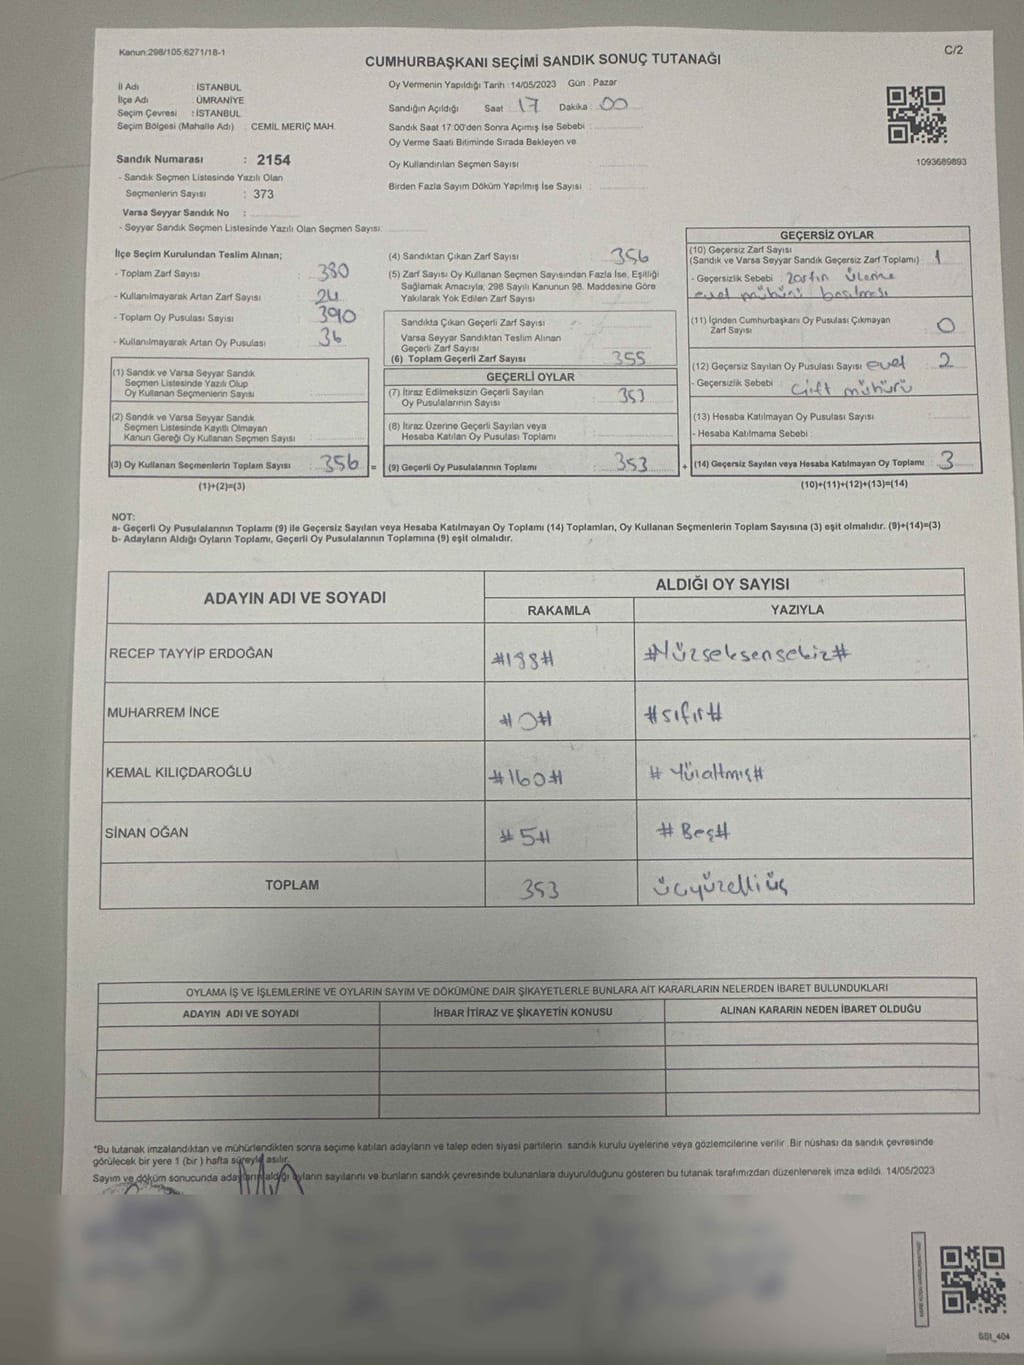 Kanun:298/105;6271/18-1
C/2
CUMHURBAŞKANI SEÇİMİ SANDIK SONUÇ TUTANAĞI
İl Adı : İSTANBUL
İlçe Adı : ÜMRANİYE
Seçim Çevresi : İSTANBUL
Seçim Bölgesi (Mahalle Adı) : CEMİL MERİÇ MAH.
Sandık Numarası : 2154
- Sandık Seçmen Listesinde Yazılı Olan
Seçmenlerin Sayısı : 373
Varsa Seyyar Sandık No :
- Seyyar Sandık Seçmen Listesinde Yazılı Olan Seçmen Sayısı:
Oy Vermenin Yapıldığı Tarih : 14/05/2023 Gün : Pazar
Sandığın Açıldığı Saat : 17 Dakika : 00
Sandık Saat 17:00'den Sonra Açımış İse Sebebi :
Oy Verme Saati Bitiminde Sırada Bekleyen ve
Oy Kullandırılan Seçmen Sayısı :
Birden Fazla Sayım Döküm Yapılmış İse Sayısı :
1093689893
İlçe Seçim Kurulundan Teslim Alınan;
- Toplam Zarf Sayısı : 380
- Kullanılmayarak Artan Zarf Sayısı : 24
- Toplam Oy Pusulası Sayısı : 390
- Kullanılmayarak Artan Oy Pusulası : 36
(1) Sandık ve Varsa Seyyar Sandık
Seçmen Listesinde Yazılı Olup
Oy Kullanan Seçmenlerin Sayısı :
(2) Sandık ve Varsa Seyyar Sandık
Seçmen Listesinde Kayıtlı Olmayan
Kanun Gereği Oy Kullanan Seçmen Sayısı :
(3) Oy Kullanan Seçmenlerin Toplam Sayısı : 356 =
(1)+(2)=(3)
(4) Sandıktan Çıkan Zarf Sayısı : 356
(5) Zarf Sayısı Oy Kullanan Seçmen Sayısından Fazla İse, Eşitliği
Sağlamak Amacıyla; 298 Sayılı Kanunun 98. Maddesine Göre
Yakılarak Yok Edilen Zarf Sayısı :
Sandıkta Çıkan Geçerli Zarf Sayısı :
Varsa Seyyar Sandıktan Teslim Alınan
Geçerli Zarf Sayısı :
(6) Toplam Geçerli Zarf Sayısı : 355
GEÇERLİ OYLAR
(7) İtiraz Edilmeksizin Geçerli Sayılan
Oy Pusulalarının Sayısı : 353
(8) İtiraz Üzerine Geçerli Sayılan veya
Hesaba Katılan Oy Pusulası Toplamı :
(9) Geçerli Oy Pusulalarının Toplamı : 353 +
GEÇERSİZ OYLAR
(10) Geçersiz Zarf Sayısı
(Sandık ve Varsa Seyyar Sandık Geçersiz Zarf Toplamı) : 1
- Geçersizlik Sebebi : Zarfın Üzerine
evet mühürü basılması
(11) İçinden Cumhurbaşkanı Oy Pusulası Çıkmayan
Zarf Sayısı : 0
(12) Geçersiz Sayılan Oy Pusulası Sayısı : evet 2
- Geçersizlik Sebebi : Çift mühürü
(13) Hesaba Katılmayan Oy Pusulası Sayısı :
- Hesaba Katılmama Sebebi :
(14) Geçersiz Sayılan veya Hesaba Katılmayan Oy Toplamı : 3
(10)+(11)+(12)+(13)=(14)
NOT:
a- Geçerli Oy Pusulalarının Toplamı (9) ile Geçersiz Sayılan veya Hesaba Katılmayan Oy Toplamı (14) Toplamları, Oy Kullanan Seçmenlerin Toplam Sayısına (3) eşit olmalıdır. (9)+(14)=(3)
b- Adayların Aldığı Oyların Toplamı, Geçerli Oy Pusulalarının Toplamına (9) eşit olmalıdır.
ADAYIN ADI VE SOYADI
ALDIĞI OY SAYISI
RAKAMLA YAZIYLA
RECEP TAYYİP ERDOĞAN #188# #Yüzseksensekiz#
MUHARREM İNCE #0# #sıfır#
KEMAL KILIÇDAROĞLU #160# #Yüzaltmış#
SİNAN OĞAN #5# #Beş#
TOPLAM 353 üçyüzelliüç
OYLAMA İŞ VE İŞLEMLERİNE VE OYLARIN SAYIM VE DÖKÜMÜNE DAİR ŞİKAYETLERLE BUNLARA AİT KARARLARIN NELERDEN İBARET BULUNDUKLARI
ADAYIN ADI VE SOYADI İHBAR İTİRAZ VE ŞİKAYETİN KONUSU ALINAN KARARIN NEDEN İBARET OLDUĞU
*Bu tutanak imzalandıktan ve mühürlendikten sonra seçime katılan adayların ve talep eden siyasi partilerin sandık kurulu üyelerine veya gözlemcilerine verilir. Bir nüshası da sandık çevresinde
görülecek bir yere 1 (bir) hafta süreyle asılır.
Sayım ve döküm sonucunda adayların aldığı oyların sayılarını ve bunların sandık çevresinde bulunanlara duyurulduğunu gösteren bu tutanak tarafımızdan düzenlenerek imza edildi. 14/05/2023
SSt_404